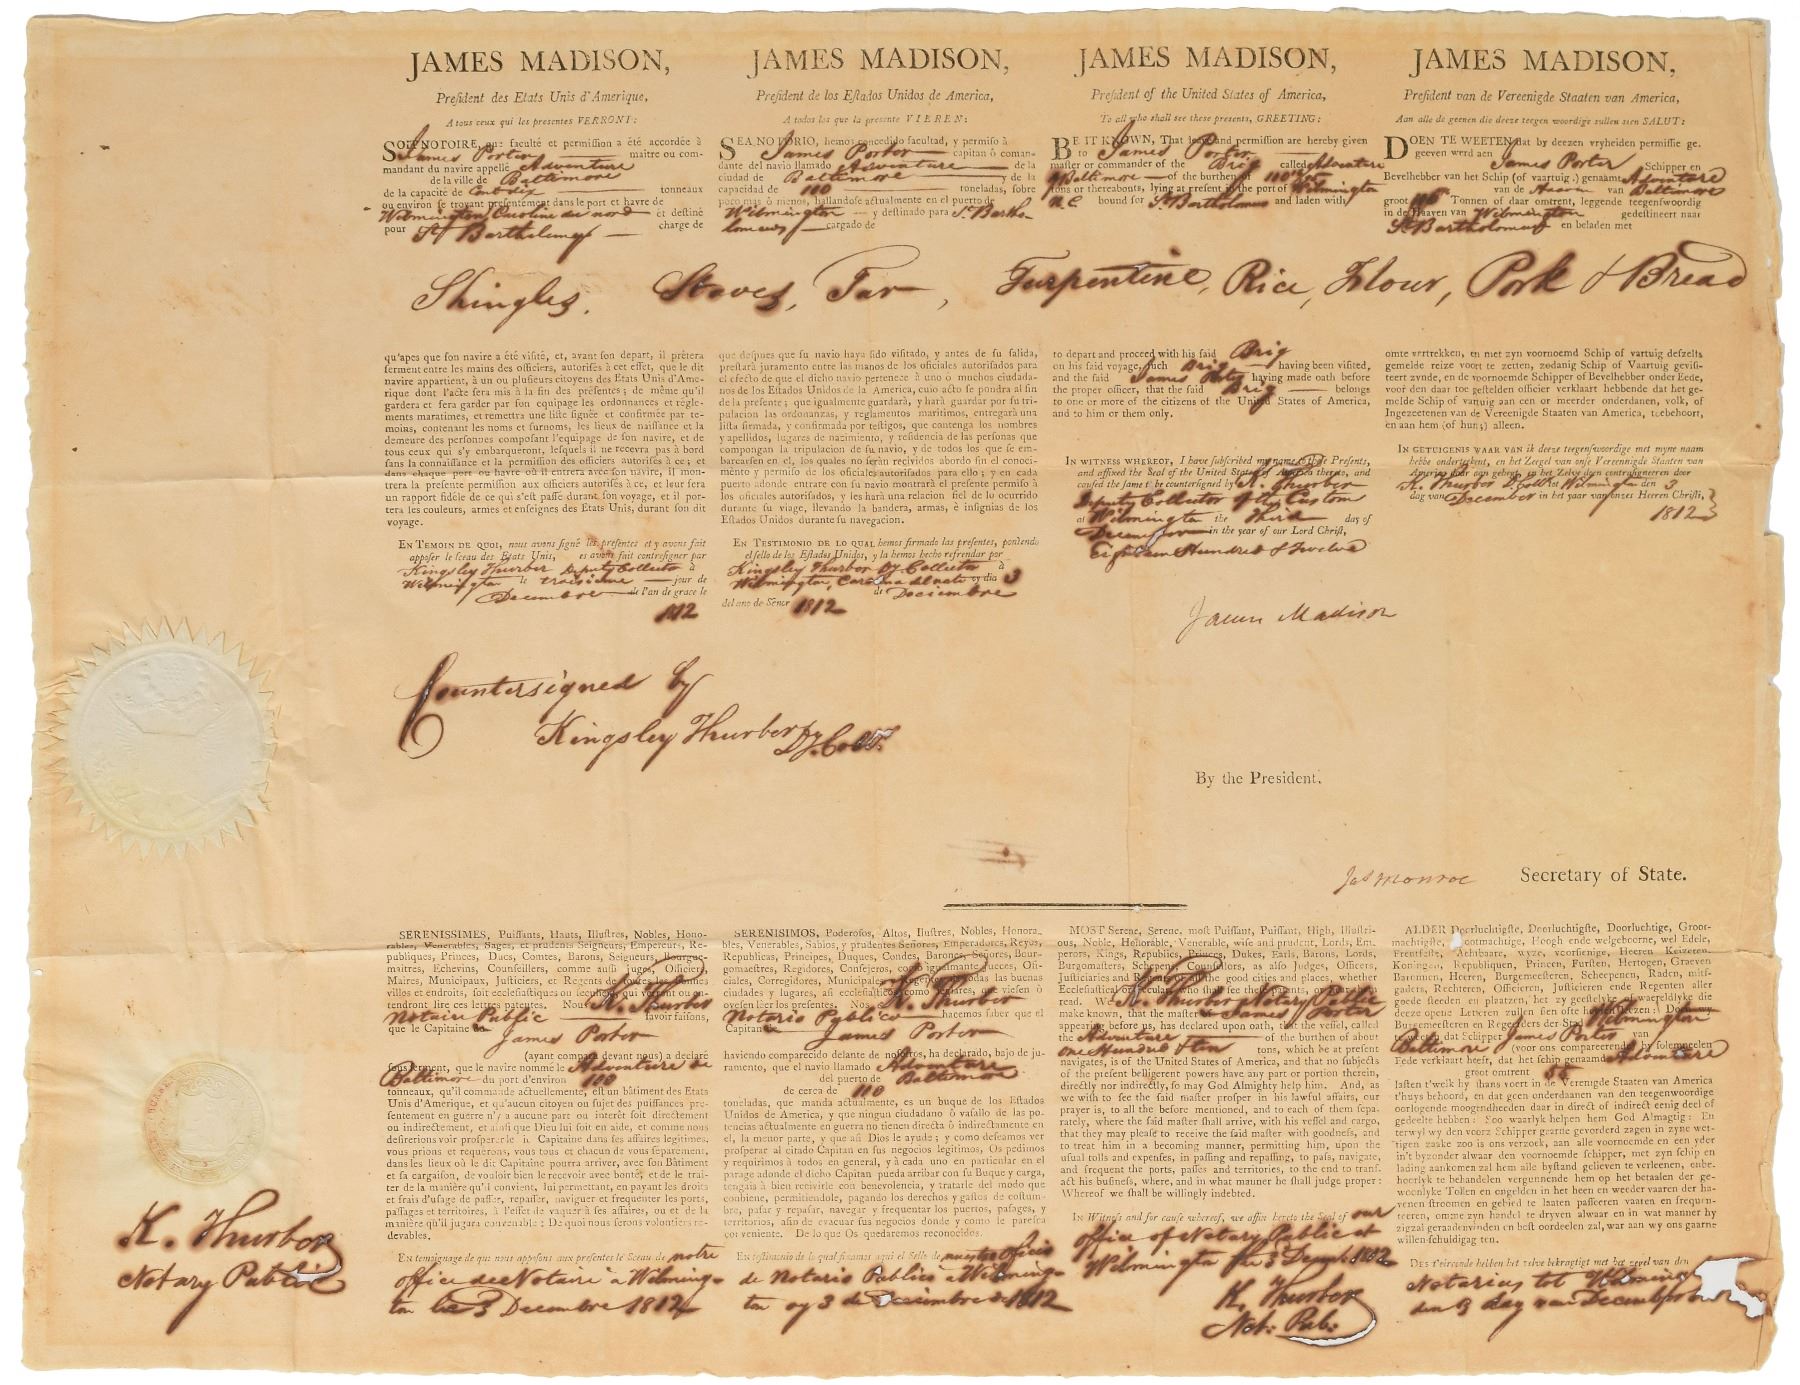 JAMES MADISON,
President des Etats Unis d'Amerique,
A tous ceux qui les presentes VERRONT:
SOIT NOTOIRE, que faculté et permission a été accordée à
James Porter maitre ou com-
mandant du navire appellé Adventure
de la ville de Baltimore
de la capacité de Cent dix tonneaux
ou environ se trouvant presentement dans le port et havre de
Wilmington, Caroline du nord et destiné
pour St Barthelemy charge de
JAMES MADISON,
President de los Estados Unidos de America,
A todos los que la presente VIEREN:
SEA NOTORIO, hemos concedido facultad, y permiso á
James Porter capitan ó coman-
dante del navio llamado Adventure
ciudad de Baltimore de la
capacidad de 110 toneladas, sobre
poco mas ó menos, hallandose actualmente en el puerto de
Wilmington y destinado para St Bartho-
lomews cargado de
JAMES MADISON,
President of the United States of America,
To all who shall see these presents, GREETING:
BE IT KNOWN, That leave and permission are hereby given
to James Porter
master or commander of the Brig called Adventure
of Baltimore of the burthen of 110
tons or thereabouts, lying at present in the port of Wilmington
N. C. bound for St Bartholomews and laden with
JAMES MADISON,
President van de Vereenigde Staaten van America,
Aan alle de geenen die deeze teegen woordige zullen zien SALUT:
DOEN TE WEETEN dat by deezen vryheiden permissie ge-
geeven werd aen James Porter Schipper en
Bevelhebber van het Schip (of vaartuig.) genaamt Adventure
van de Haaven van Baltimore
groot 110 Tonnen of daar omtrent, leggende teegenswoordig
in de Haaven van Wilmington gedestineert naar
St Bartholomews en beladen met
Shingles, Staves, Tar, Turpentine, Rice, Flour, Pork & Bread
qu'apes que son navire a été visité, et, avant son depart, il prêtera
serment entre les mains des officiers, autorisés à cet effet, que le dit
navire appartient, à un ou plusieurs citoyens des Etats Unis d'Ame-
rique dont l'acte sera mis à la fin des présentes; de même qu'il
gardera et fera garder par son equipage les ordonnances et régle-
ments maritimes, et remettra une liste signée et confirmée par te-
moins, contenant les noms et surnoms, les lieux de naissance et la
demeure des personnes composant l'equipage de son navire, et de
tous ceux qui s'y embarqueront, lesquels il ne recevra pas à bord
sans la connaissance et la permission des officiers autorisés à ce; et
dans chaque port ou havre où il entrera avec son navire, il mon-
trera la presente permission aux officiers autorisés à ce, et leur fera
un rapport fidéle de ce qui s'est passé durant son voyage, et il por-
tera les couleurs, armes et enseignes des Etats Unis, durant son dit
voyage.
EN TEMOIN DE QUOI, nous avons signé les presentes et y avons fait
apposer le sceau des Etats Unis, es avons fait contresigner par
Kingsley Thurber Deputy Collector à
Wilmington le troisieme jour de
Decembre de l'an de grace le
1812
que despues que su navio haya sido visitado, y antes de su salida,
prestará juramento entre las manos de los oficiales autorizados para
el efecto de que el dicho navio pertenece à uno ò muchos ciudada-
nos de los Estados Unidos de la America, cuio acto se pondra al fin
de la presente; que igualmente guardará, y hará guardar por su tri-
pulacion las ordonanzas, y reglamentos maritimos, entregará una
lista firmada, y confirmada por testigos, que contenga los nombres
y apellidos, lugares de nazimiento, y residencia de las personas que
compongan la tripulacion de su navio, y de todos los que se em-
barcasen en el, los quales no serán recividos abordo sin el conoci-
mento y permiso de los oficiales autorisados para ello; y en cada
puerto adonde entrare con su navio montrará el presente permiso à
los oficiales autorizados, y les hará una relacion fiel de lo ocurrido
durante su viage, llevando la bandera, armas, è insignias de los
Estados Unidos durante su navegacion.
EN TESTIMONIO DE LO QUAL hemos firmado las presentes, poniendo
el sello de los Estados Unidos, y la hemos hecho refrendar por
Kingsley Thurber Dy Collector à
Wilmington, Carolina del norte oy dia 3
de Deciembre
del ano de Sénor 1812
to depart and proceed with his said Brig
on his said voyage, such Brig having been visited,
and the said James Porter having made oath before
the proper officer, that the said Brig belongs
to one or more of the citizens of the United States of America,
and to him or them only.
IN WITNESS WHEREOF, I have subscribed my name to these Presents,
and affixed the Seal of the United States of America thereto, and
caused the same to be countersigned by K. Thurber
Deputy Collector of the Customs
at Wilmington the Third day of
December in the year of our Lord Christ,
Eighteen Hundred & Twelve
omte vertrekken, en met zyn voornoemd Schip of vartuig defzelfs
gemelde reize voort te zetten, zodanig Schip of Vaartuig gevisi-
teert zynde, en de voornoemde Schipper of Bevelhebber onder Eede,
voor den daar toe gestelden officier verklaart hebbende dat het ge-
melde Schip of vartuig aan een or meerder onderdanen, volk, of
Ingezeetenen van de Vereenigde Staaten van America, toebehoort,
en aan hem (of hun;) alleen.
IN GETUIGENIS WAAR VAN ik deeze teegenswoordige met myne naam
hebbe ondertekent, en het Zeegel van onse Vereenigde Staaten van
America daar aan gehegt, en het Zelve doen contrasigneren door
K. Thurber D. Coll. tot Wilmington den 3
dag van December in het jaar van onzes Heeren Christi,
1812
James Madison
Countersigned by
Kingsley Thurber Dy. Collr.
By the President.
Jas Monroe Secretary of State.
SERENISSIMES, Puissants, Hauts, Illustres, Nobles, Hono-
rables, Venerables, Sages, et prudents Seigneurs, Empereurs, Re-
publiques, Princes, Ducs, Comtes, Barons, Seigneurs, Bourgue-
maitres, Echevins, Counseillers, comme aussi juges, Officiers,
Maires, Municipaux, Justiciers, et Regents de toutes les bonnes
villes et endroits, soit ecclesiastiques ou seculiers, qui verront ou en-
tendront lire ces lettres patentes. Nous K. Thurber
Notaire Public savoir faisons,
que le Capitaine
James Porter
(ayant comparu devant nous) a declaré
sous serment, que le navire nommé le Adventure de
Baltimore du port d'environ 110
tonneaux, qu'il commande actuellement, est un bâtiment des Etats
Unis d'Amerique, et qu'aucun citoyen ou sujet des puissances pre-
sentement en guerre n'y a aucune part ou interêt soit directement
ou indirectement, et ainsi que Dieu lui soit en aide, et comme nous
desirerions voir prosperer le dit Capitaine dans ses affaires legitimes,
vous prions et requerons, vous tous et chacun de vous separement,
dans les lieux où le dit Capitaine pourra arriver, avec son Bâtiment
et sa cargaison, de vouloir bien le recevoir avec bonté, et de le trai-
ter de la manière qu'il convient, lui permettant, en payant les droits
et frais d'usage de passer, repasser, naviguer et frequenter les ports,
passages et territoires, à l'effet de vaquer à ses affaires, ou et de la
manière qu'il jugura convenable: De quoi nous serons volontiers re-
devables.
En temoignage de quo nous apposons aux presentes le Sceau de notre
office de Notaire à Wilming-
ton le 3 Decembre 1812
SERENISIMOS, Poderosos, Altos, Ilustres, Nobles, Honora-
bles, Venerables, Sabios, y prudentes Señores, Emperadores, Reyes,
Republicas, Principes, Duques, Condes, Barones, Señores, Bour-
gomaestres, Regidores, Consejeros, como igualmante Jueces, Ofi-
ciales, Corregidores, Municipales, todas las buenas
ciudades y lugares, asi ecclesiasticos como seglares, que viesen ó
oyesen leer los presentes. Nos K. Thurber
Notario Publico hacemos saber que el
Capitan
James Porter
haviendo comparecido delante de nosotros, ha declarado, bajo de ju-
ramento, que el navio llamado Adventure
del puerto de Baltimore
de cerca de 110
toneladas, que manda actualmente, es un buque de los Estados
Unidos de America, y que ningun ciudadano ó vasallo de las po-
tencias actualmente en guerra no tienen directa ó indirectamente en
el, la menor parte, y que asi Dios le ayude; y como deseamos ver
prosperar al citado Capitan en sus negocios legitimos, Os pedimos
y requirimos à todos en general, y à cada uno en particular en el
parage adonde el dicho Capitan pueda arribar con su Buque y carga,
tengais à bien recivirle con benevolencia, y tratarle del modo que
conbiene, permitiendole, pagando los derechos y gastos de costum-
bre, pasar y repasar, navegar y frequentar los puertos, pasages, y
territorios, afin de evacuar sus negocios dónde y como le paresca
conveniente. De lo que Os quedaremos reconocidos.
En testimonio de lo qual firmamos aqui el Sello de nuestro Officio
de Notario Publico a Wilming-
ton oy 3 de Deciembre de 1812
MOST Serene, Serene, most Puissant, Puissant, High, Illustri-
ous, Noble, Honorable, Venerable, wise and prudent, Lords, Em-
perors, Kings, Republics, Princes, Dukes, Earls, Barons, Lords,
Burgomasters, Schepens, Counsellors, as also Judges, Officers,
Justiciaries and Regents of all the good cities and places, whether
Ecclesiastical or secular, who shall see these patents, or hear them
read. We K. Thurber Notary Public
make known, that the master James Porter
appearing before us, has declared upon oath, that the vessel, called
the Adventure of the burthen of about
One Hundred & ten tons, which he at present
navigates, is of the United States of America, and that no subjects
of the present belligerent powers have any part or portion therein,
directly nor indirectly, so may God Almighty help him. And, as
we wish to see the said master prosper in his lawful affairs, our
prayer is, to all the before mentioned, and to each of them sepa-
rately, where the said master shall arrive, with his vessel and cargo,
that they may please to receive the said master with goodness, and
to treat him in a becoming manner, permitting him, upon the
usual tolls and expenses, in passing and repassing, to pass, navigate,
and frequent the ports, passes and territories, to the end to trans-
act his business, where, and in what manner he shall judge proper:
Whereof we shall be willingly indebted.
In Witness and for cause whereof, we affix hereto the Seal of our
office of Notary Public at
Wilmington the 3 Decemb. 1812
K. Thurber
Not: Pub:
ALDER Doorluchtigste, Doorluchtige, Groot-
machtigste, Grootmachtige, Hoogh ende welgeboorne, wel Edele,
Erentfeste, Achtbaare, wyze, voorsienige, Heeren Keizeren,
Koningen, Republiquen, Princen, Fursten, Hertogen, Graeven
Baronen, Heeren, Burgemeesteren, Scheepenen, Raden, mitf-
gaders, Rechteren, Officieren, Justicieren ende Regenten aller
goede steeden en plaatzen, het zy geestelyke of waereldlyke die
deeze opene Leteren zullen sien ofte hooren leezen: Doen wy
Burgemeesteren en Regeerders der Stad Wilmington
te weeten dat Schipper James Porter van
Baltimore (voor ons compareerende) by solemneelen
Eede verklaart heeft, dat het schip genaamt Adventure
groot omtrent 55
lasten t'welk by thans voert in de Verenigde Staaten van America
t'huys behoord, en dat geen onderdaanen van den teegenwoordige
oorlogende moogendheeden daar in direct of indirect eenig deel of
gedeelte hebben: Soo waarlyk helpen hem God Almagtig: En
terwyl wy den voorz Schipper gaarne gevorderd zagen in zyne wet-
tigen zaake zoo is ons verzoek, aan alle voornoemde en een yder
in't byzonder alwaar den voornoemde schipper, met zyn schip en
lading aankomen zal hem alle bystand gelieven te verleenen, enbe-
heerlyk te behandelen vergunnende hem op het betaalen der ge-
woonlyke Tollen en engelden in het heen en weeder vaaren der ha-
venen stroomen en gebied te laaten passeeren vaaten en frequen-
teeren, omme zyn handel te dryven alwaar en in wat manner hy
zigzal geraadenvinden en best oordeelen zal, war aan wy ons gaarne
willen schuldigag ten.
DES t'eirconde hebben het zelve bekragtigt met het zegel van den
Notarius tot Wilming
den 3 dag van December
K. Thurber
Notary Public